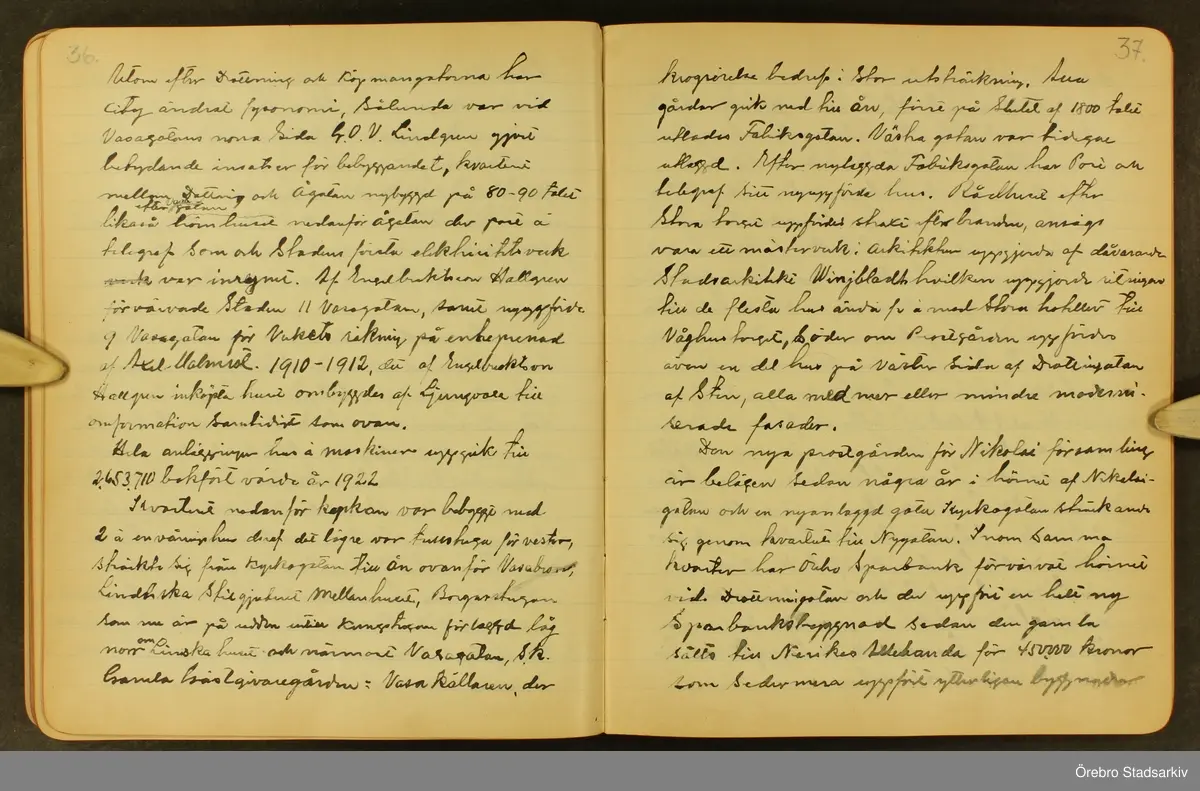 36.
Utom efter Drottning och Köpmangatorna har
City ändrat fysonomi, Sålunda var vid
Vasagatans norra Sida G.O.V. Lindgren gjort
betydande insatser för bebyggandet, kvarteret
mellan Drottning och Ågatan nybyggd på 80-90 talet
likaså hörnhuset nedanför Ågatan der post å
telegraf Som och Stadens första elektricitetsverk
var inrymt. Af Engelbrektson Hallgren
förvärvade Staden 11 Vasagatan, samt uppförde
9 Vasagatan för Verkets räkning på entreprenad
af Axel Malmrot. 1910-1912, det af Engelbrektson
Hallgren inköpta huset ombyggdes af Ljungvall till
omformation Samtidigt som ovan.
Hela anläggningen hus å maskiner uppgick till
2,653,710 bokfört värde år 1922
Kvarteret nedanför kyrkan var bebyggt med
2 à en vånings hus deraf det lägre var
sträckte sig från Kyrkogatan till ån ovanför Vasabron,
Lindhska Stilgjuteriet Mellanhuset, Borgarstugan
som nu är på udden förlaggd låg
norr om Linska huset och närmast Vasagatan, S.k.
Gamla Gästgivaregården = Vasakällaren, der
37.
krogrörelse bedrefs i Stor utsträckning. Alla
gårdar gick ned till ån, först på Slutet af 1800 talet
utlades Fabriksgatan. Västra gatan var tidigare
utlagd. Efter nylaggda Fabriksgatan har Post och
telegraf sitt nyuppförda hus. Rådhuset efter
Stora torget uppfördes strax efter branden, ansågs
vara ett mästerverk i arkitektur uppgjorda af dåvarande
Stadsarkitekt Winjbladth hvilken uppgjorde ritningar
till de flesta hus ända fr å med Stora hotellet till
Våghustorget, Söder om Prostgården uppfördes
även en del hus på Västra Sidan af Drottninggatan
af Sten, alla med mer eller mindre moderni-
serade fasader.
Den nya prostgården för Nikolai församling
är belägen Sedan några år i hörnet af Nikolai-
gatan och en nyanlaggd gata Kyrkogatan sträckande
sig genom kvarteret till Nygatan. Inom Samma
kvarter har Örebro Sparbank förvärvat hörnet
vid Drottninggatan och der uppfört en helt ny
Sparbanksbyggnad Sedan den gamla
sålts till Nerikes Allehanda för 450000 kronor
som Sedermera uppfört ytterligare byggnader
Örebro Stadsarkiv